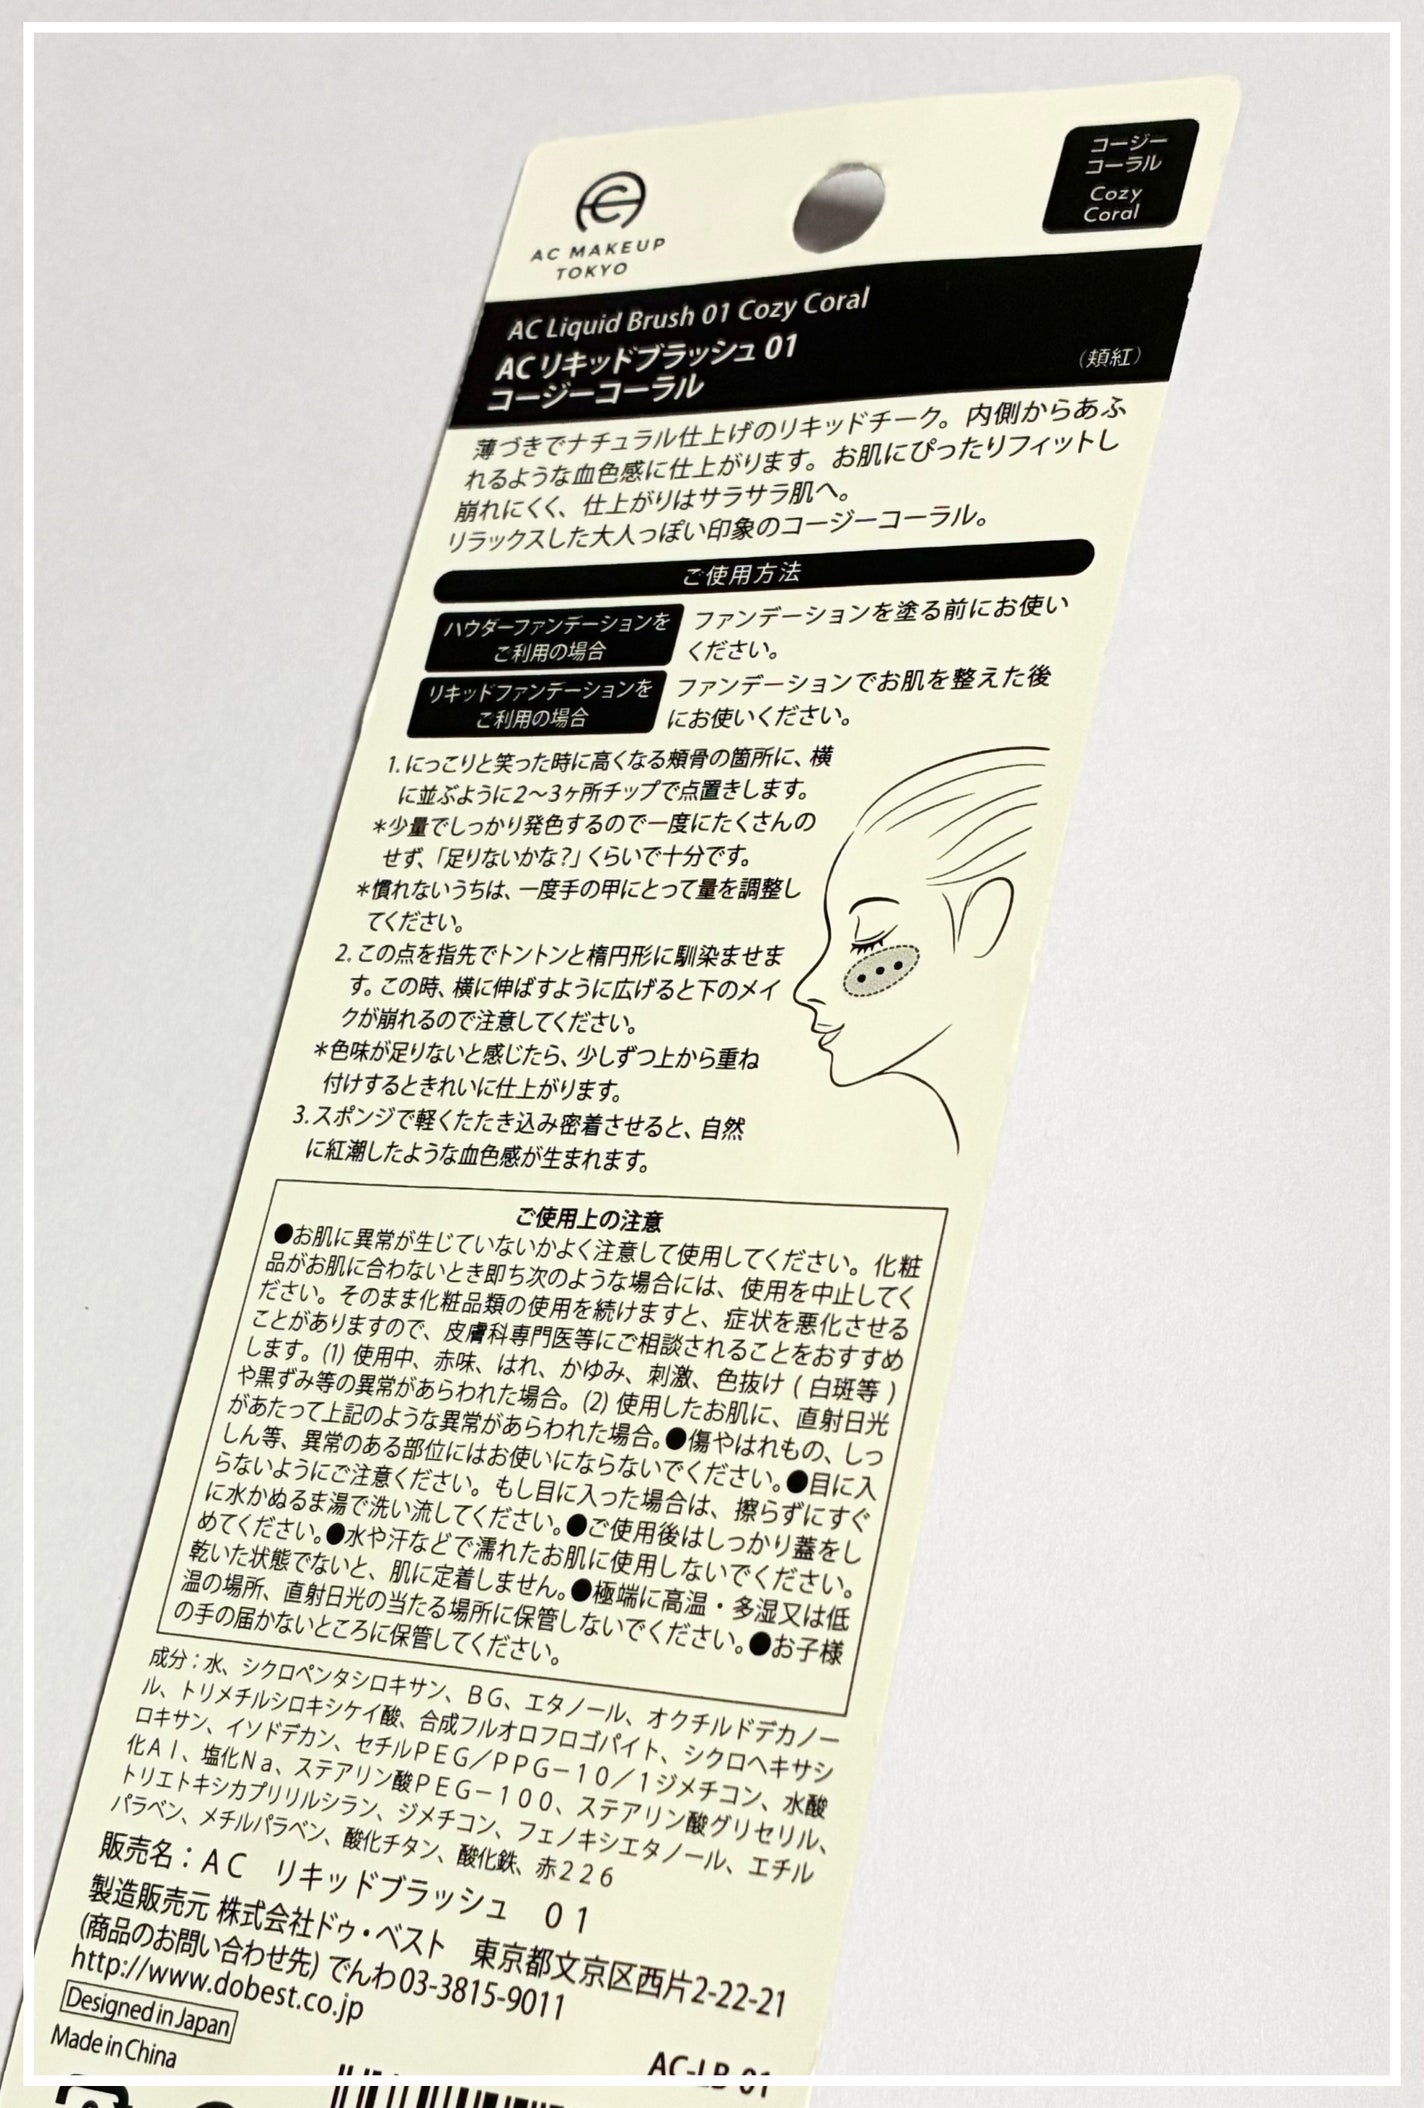 AC MAKEUP
TOKYO
コージー
コーラル
Cozy
Coral
AC Liquid Brush 01 Cozy Coral
AC リキッドブラッシュ 01
コージーコーラル
（頬紅）
薄づきでナチュラル仕上げのリキッドチーク。内側からあふ
れるような血色感に仕上がります。お肌にぴったりフィットし
崩れにくく、仕上がりはサラサラ肌へ。
リラックスした大人っぽい印象のコージーコーラル。
ご使用方法
ハウダーファンデーションを
ご利用の場合
ファンデーションを塗る前にお使い
ください。
リキッドファンデーションを
ご利用の場合
ファンデーションでお肌を整えた後
にお使いください。
1. にっこりと笑った時に高くなる頬骨の箇所に、横
に並ぶように2～3ヶ所チップで点置きします。
＊少量でしっかり発色するので一度にたくさんの
せず、「足りないかな?」くらいで十分です。
＊慣れないうちは、一度手の甲にとって量を調整し
てください。
2. この点を指先でトントンと楕円形に馴染ませま
す。この時、横に伸ばすように広げると下のメイ
クが崩れるので注意してください。
＊色味が足りないと感じたら、少しずつ上から重ね
付けするときれいに仕上がります。
3. スポンジで軽くたたき込み密着させると、自然
に紅潮したような血色感が生まれます。
ご使用上の注意
●お肌に異常が生じていないかよく注意して使用してください。化粧
品がお肌に合わないとき即ち次のような場合には、使用を中止してく
ださい。そのまま化粧品類の使用を続けますと、症状を悪化させる
ことがありますので、皮膚科専門医等にご相談されることをおすすめ
します。(1) 使用中、赤味、はれ、かゆみ、刺激、色抜け ( 白斑等 )
や黒ずみ等の異常があらわれた場合。(2) 使用したお肌に、直射日光
があたって上記のような異常があらわれた場合。●傷やはれもの、しっ
しん等、異常のある部位にはお使いにならないでください。●目に入
らないようにご注意ください。もし目に入った場合は、擦らずにすぐ
に水かぬるま湯で洗い流してください。●ご使用後はしっかり蓋をし
めてください。●水や汗などで濡れたお肌に使用しないでください。
乾いた状態でないと、肌に定着しません。●極端に高温・多湿又は低
温の場所、直射日光の当たる場所に保管しないでください。●お子様
の手の届かないところに保管してください。
成分：水、シクロペンタシロキサン、ＢＧ、エタノール、オクチルドデカノー
ル、トリメチルシロキシケイ酸、合成フルオロフロゴパイト、シクロヘキサシ
ロキサン、イソドデカン、セチルＰＥＧ／ＰＰＧ－１０／１ジメチコン、水酸
化Ａｌ、塩化Ｎａ、ステアリン酸ＰＥＧ－１００、ステアリン酸グリセリル、
トリエトキシカプリリルシラン、ジメチコン、フェノキシエタノール、エチル
パラベン、メチルパラベン、酸化チタン、酸化鉄、赤２２６
販売名：ＡＣ　リキッドブラッシュ　０１
製造販売元 株式会社ドゥ・ベスト　東京都文京区西片2-22-21
(商品のお問い合わせ先) でんわ 03-3815-9011
http://www.dobest.co.jp
Designed in Japan
Made in China
AC-LB 01